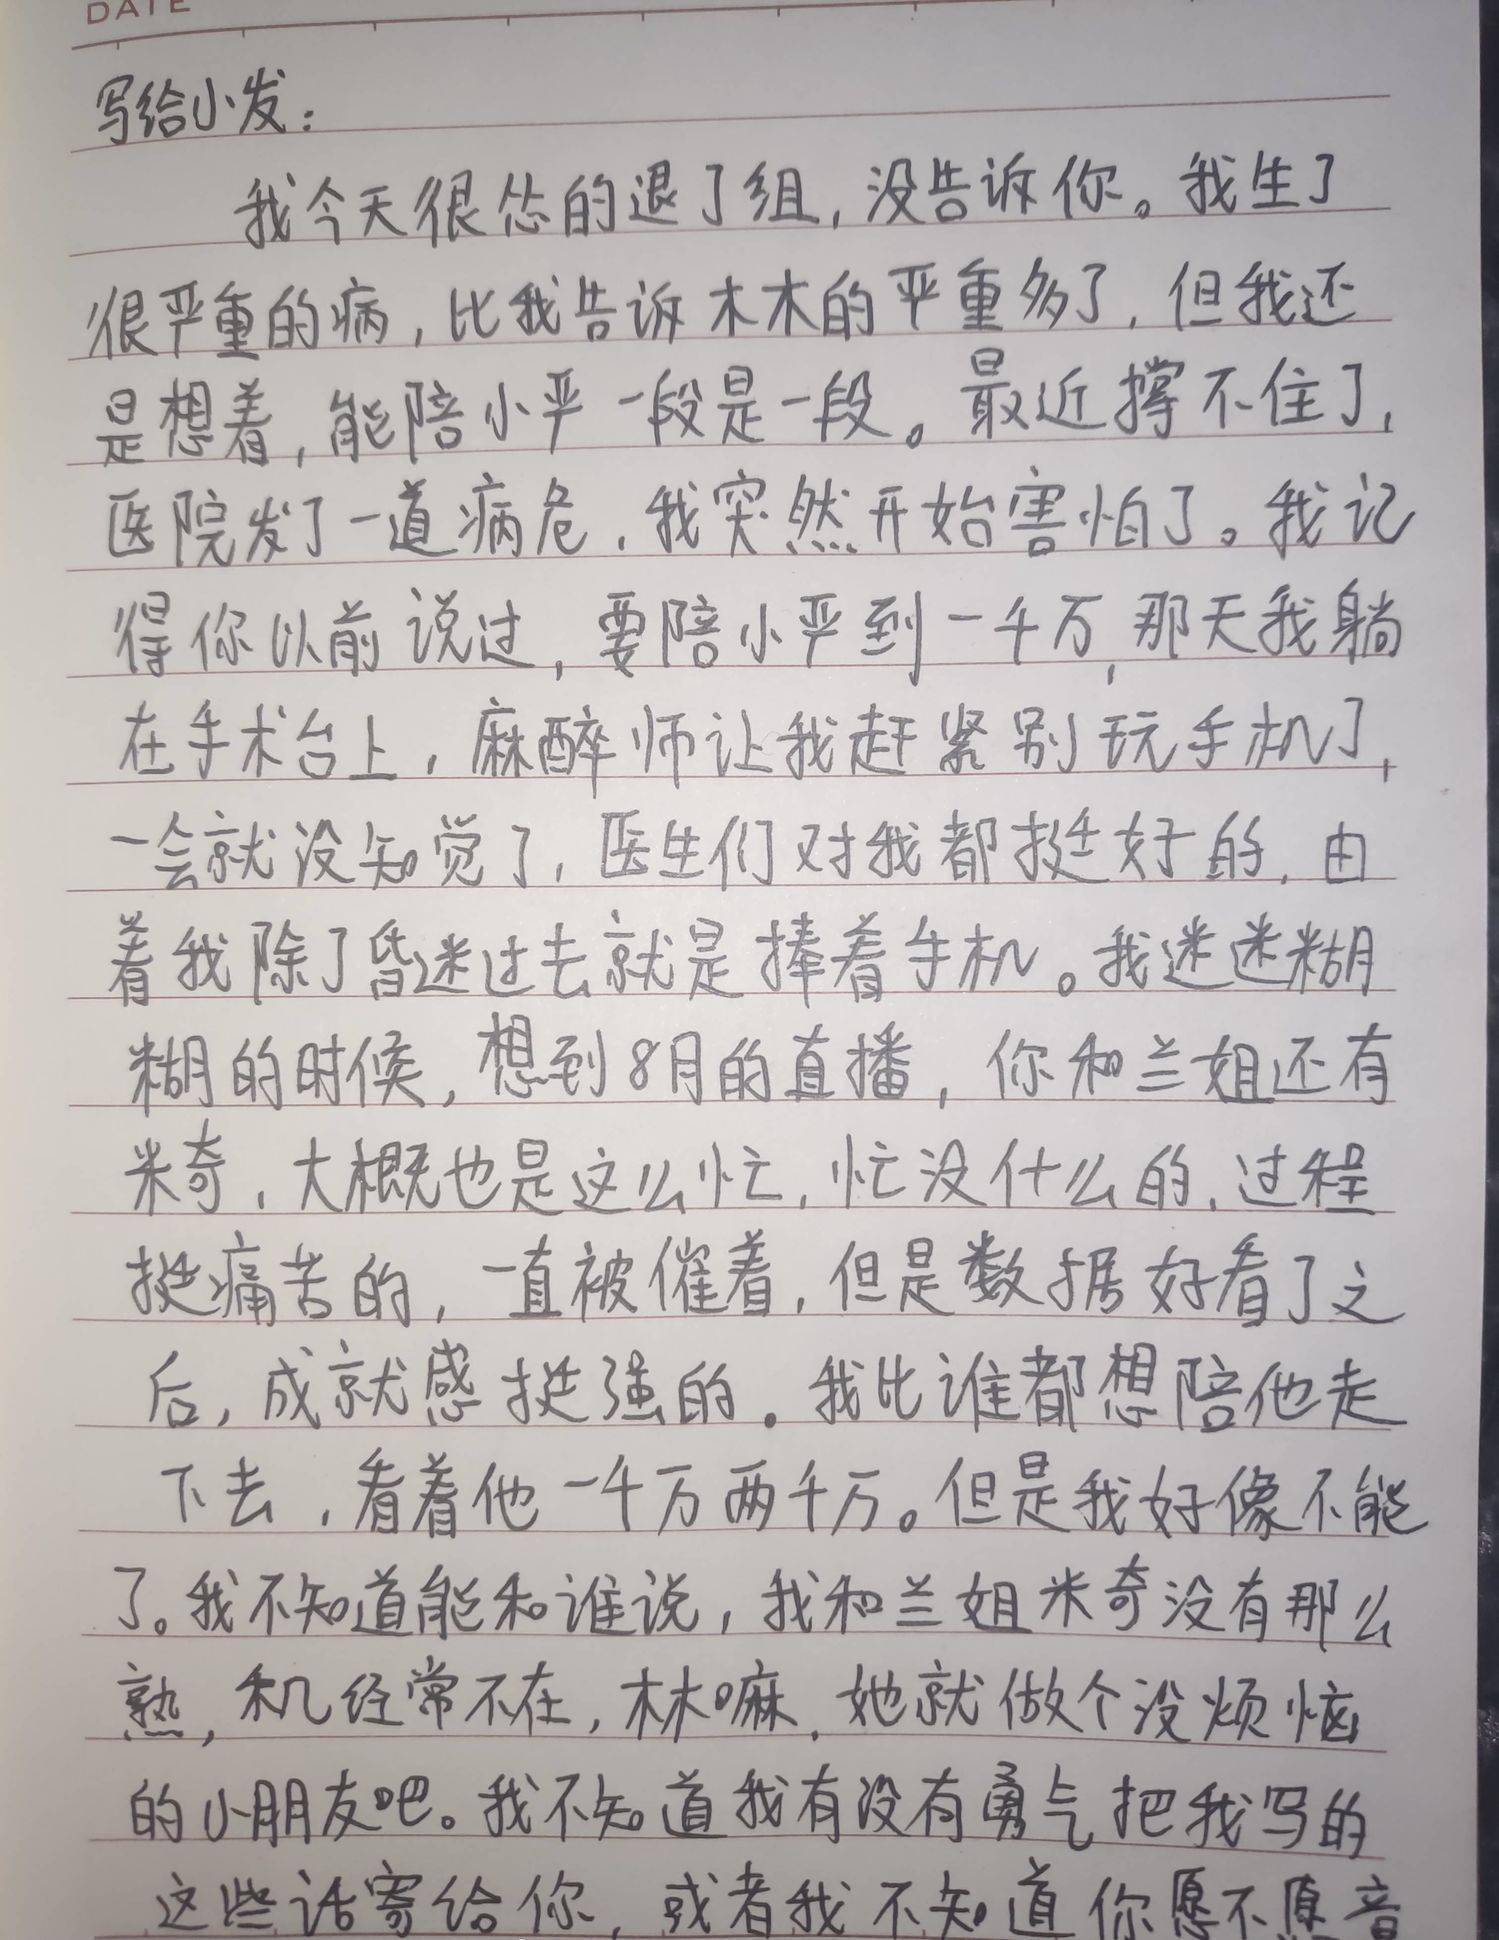 DATE
写给小发：
我今天很怂的退了组，没告诉你。我生了
很严重的病，比我告诉木木的严重多了，但我还
是想着，能陪小严一段是一段。最近撑不住了，
医院发了一道病危，我突然开始害怕了。我记
得你以前说过，要陪小严到一千万，那天我躺
在手术台上，麻醉师让我赶紧别玩手机了，
一会就没知觉了，医生们对我都挺好的，由
着我除了昏迷过去就是捧着手机。我迷迷糊
糊的时候，想到8月的直播，你和兰姐还有
米奇，大概也是这么忙，忙没什么的，过程
挺痛苦的，一直被催着，但是数据好看了之
后，成就感挺强的。我比谁都想陪他走
下去，看着他一千万两千万。但是我好像不能
了。我不知道能和谁说，我和兰姐米奇没有那么
熟，和几经常不在，木木嘛，她就做个没烦恼
的小朋友吧。我不知道我有没有勇气把我写的
这些话寄给你，或者我不知道你愿不愿意